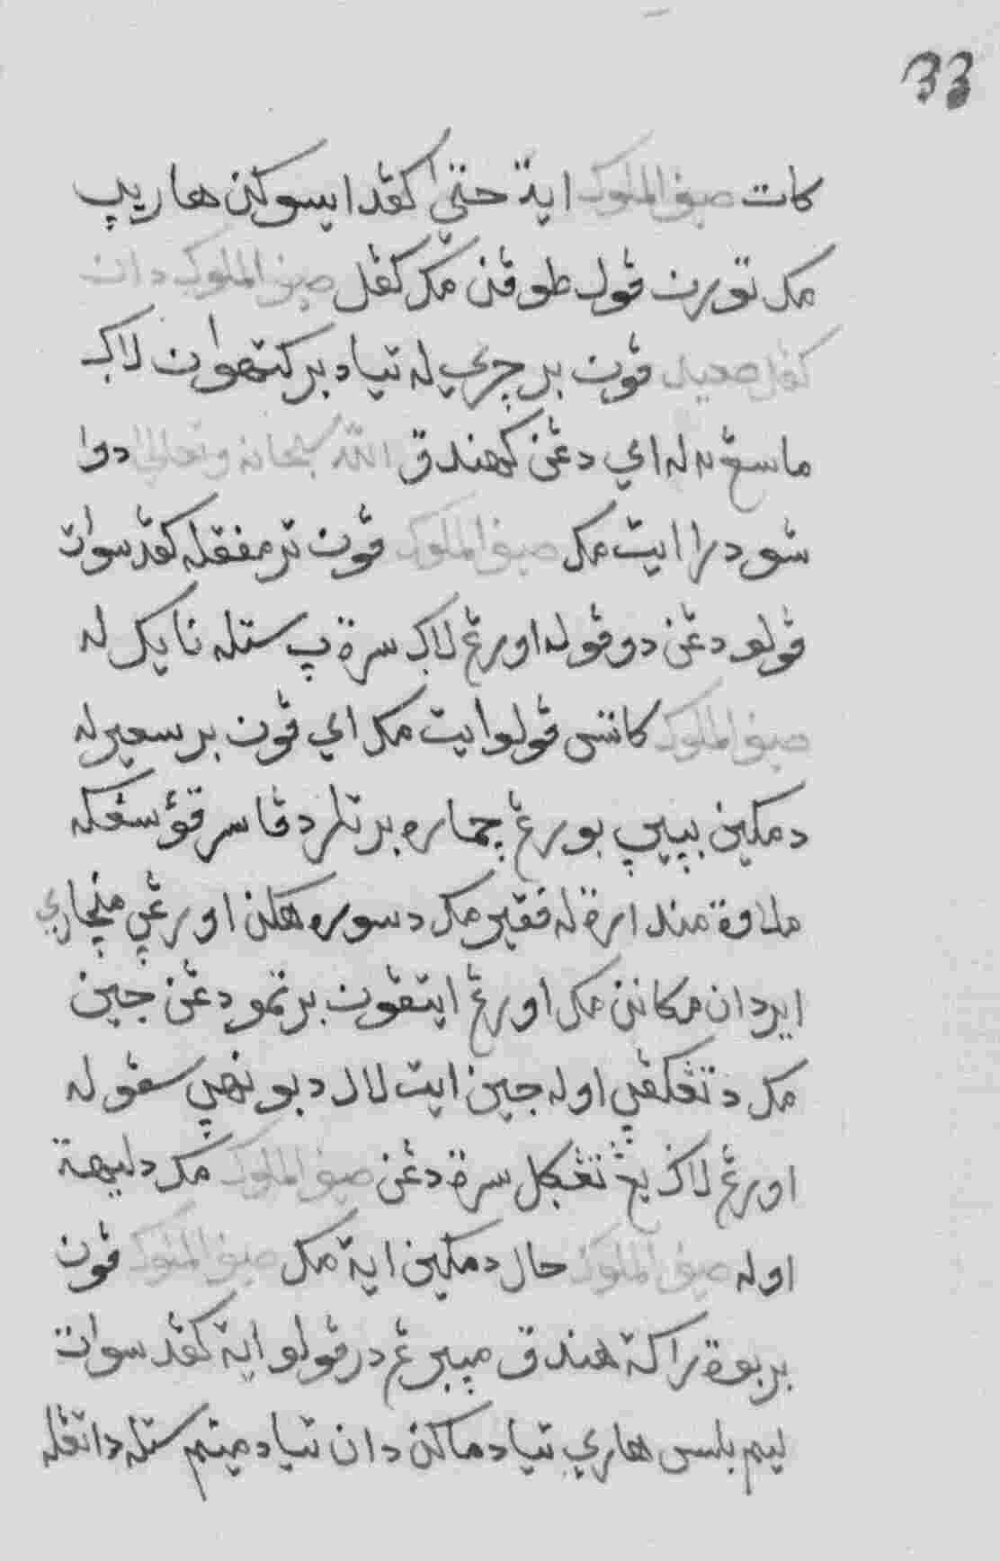 33
كات صيف الملوك ايت حتى كڤد ايسوكڽ هاريڽ
مك تورن ڤول طوفن مك كفل صيف الملوك دان
كفل صعيد ڤون برچريله تياد بركتهوان لاݢ
ماسڠ٢ له اي دڠن كهندق الله سبحانه وتعالى دوا
سودرا ايت مك صيف الملوك ڤون ترمفقله كڤد سوات
ڤولو دڠن دوڤوله اورڠ لاݢ سرت ڽ ستله نايكله
صيف الملوك كاتس ڤولو ايت مك اي ڤون برسعيرله
دمكين ببڽڽ بورڠ چماره برتلر دڤاسر قوٴسڠكه
ملاوة مندارة له فقير مك دسوره هكن اورڠڽ منچاري
اير دان مكانن مك اورڠ ايتڤون برتمو دڠن جين
مك دتڠكڤڽ اوله جين ايت لالو دبونهڽ سڤوله
اورڠ لاݢ يڠ تڠݢل سرت دڠن صيف الملوك مك دليهت
اوله صيف الملوك حال دمكين ايت مك صيف الملوك ڤون
بربوة راكت هندق مپبرڠ در ڤولو ايت كڤد سوات
ليم بلس هاري تياد ماكن دان تياد مينم ستله داتڠله